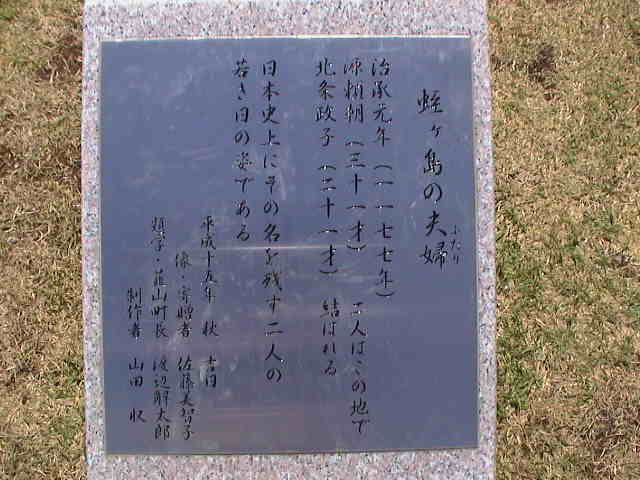 蛭ヶ島の夫婦
ふたり
治承元年（一一七七年）
源頼朝（三十一才）二人はこの地で
北条政子（二十一才）結ばれる
日本史上にその名を残す二人の
若き日の姿である
平成十五年 秋 吉日
像・寄贈者 佐藤美智子
題字・韮山町長 渡辺
制作者 山田 収